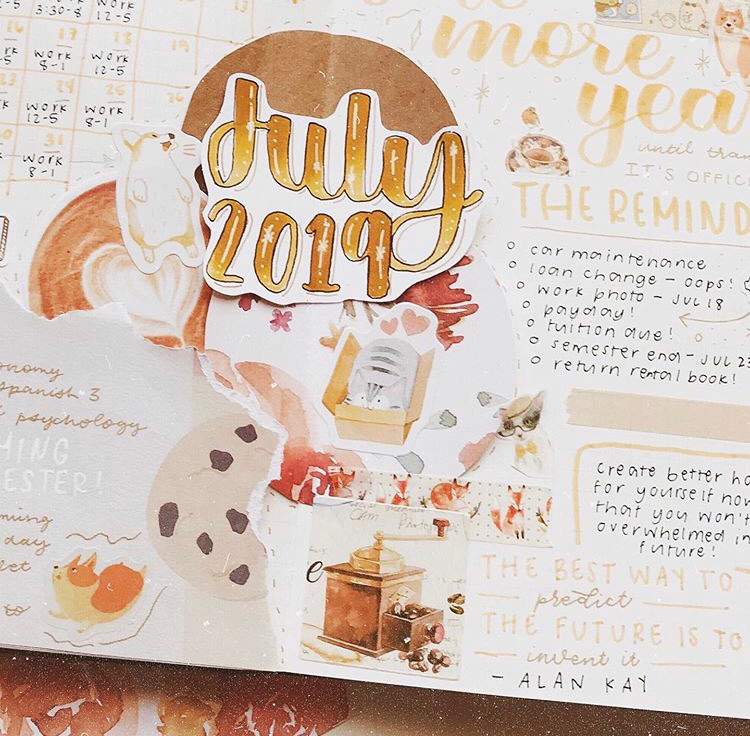 3:30-8
12-5
16
17
18
19
work
8-1
work
12-5
23
24
25
26
work
12-5
work
8-1
30
31
work
8-1
July
2019
Spanish 3
psychology
day
to
more
until
IT'S
THE REMIND
car maintenance
loan change - oops!
work photo - JUL 18
payday!
tuition due!
semester end - JUL 23
return rental book!
Create better
for yourself now
that you won't
overwhelmed in
future!
THE BEST WAY TO
predict
THE FUTURE IS TO
invent it
- ALAN KAY